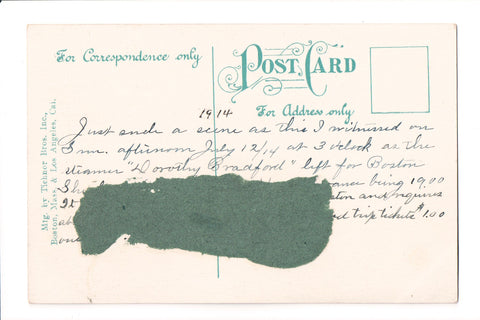 For Correspondence only
POST CARD
For Address only
Mfg. by Tichnor Bros. Inc.,
Boston, Mass. & Los Angeles, Cal.
1914
Just such a scene as this I witnessed on
Sun. afternoon July 12/14 at 3 o'clock as the
steamer "Dorothy Bradford" left for Boston
being 1900
and requires
trip tickets $1.00